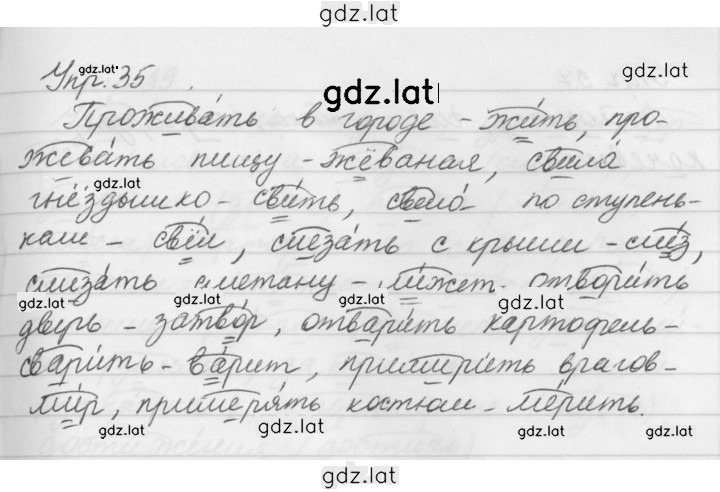 gdz.lat
Упр. 35
gdz.lat
gdz.lat
gdz.lat
Проживать в городе - жить, про-
жевать пищу - жёваная, свила
gdz.lat
гнёздышко - свить, свела по ступень-
кам - свёл, слезать с крыши - слез,
слизать сметану - лижет, отворить
gdz.lat gdz.lat gdz.lat gdz.lat
дверь - затвор, отварить картофель -
сварить - варит, примирить врагов -
мир, примерять костюм - мерить.
gdz.lat gdz.lat gdz.lat gdz.lat
gdz.lat